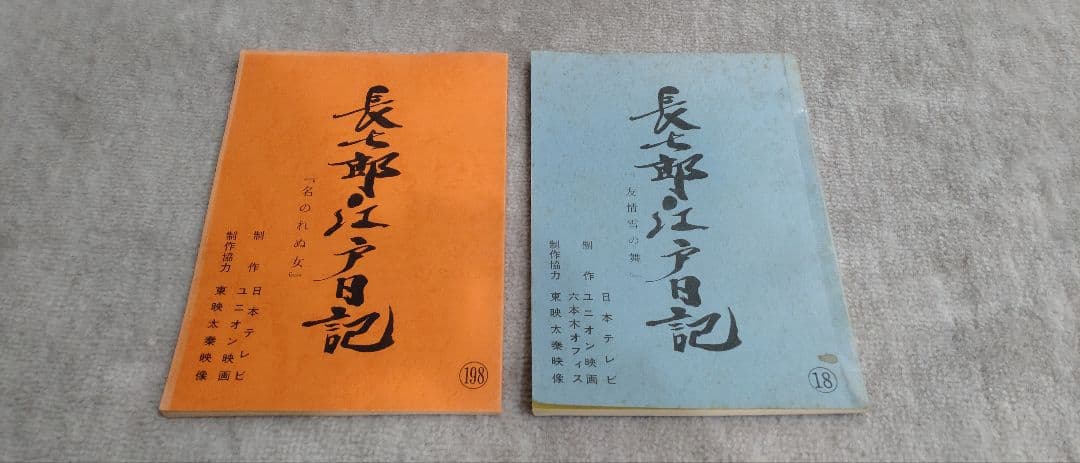 長七郎江戸日記
『名のれぬ女』
制作
日本テレビ
ユニオン映画
制作協力
東映太秦映像
198
長七郎江戸日記
「友情雪の舞」
制作
日本テレビ
ユニオン映画
六本木オフィス
制作協力
東映太秦映像
18